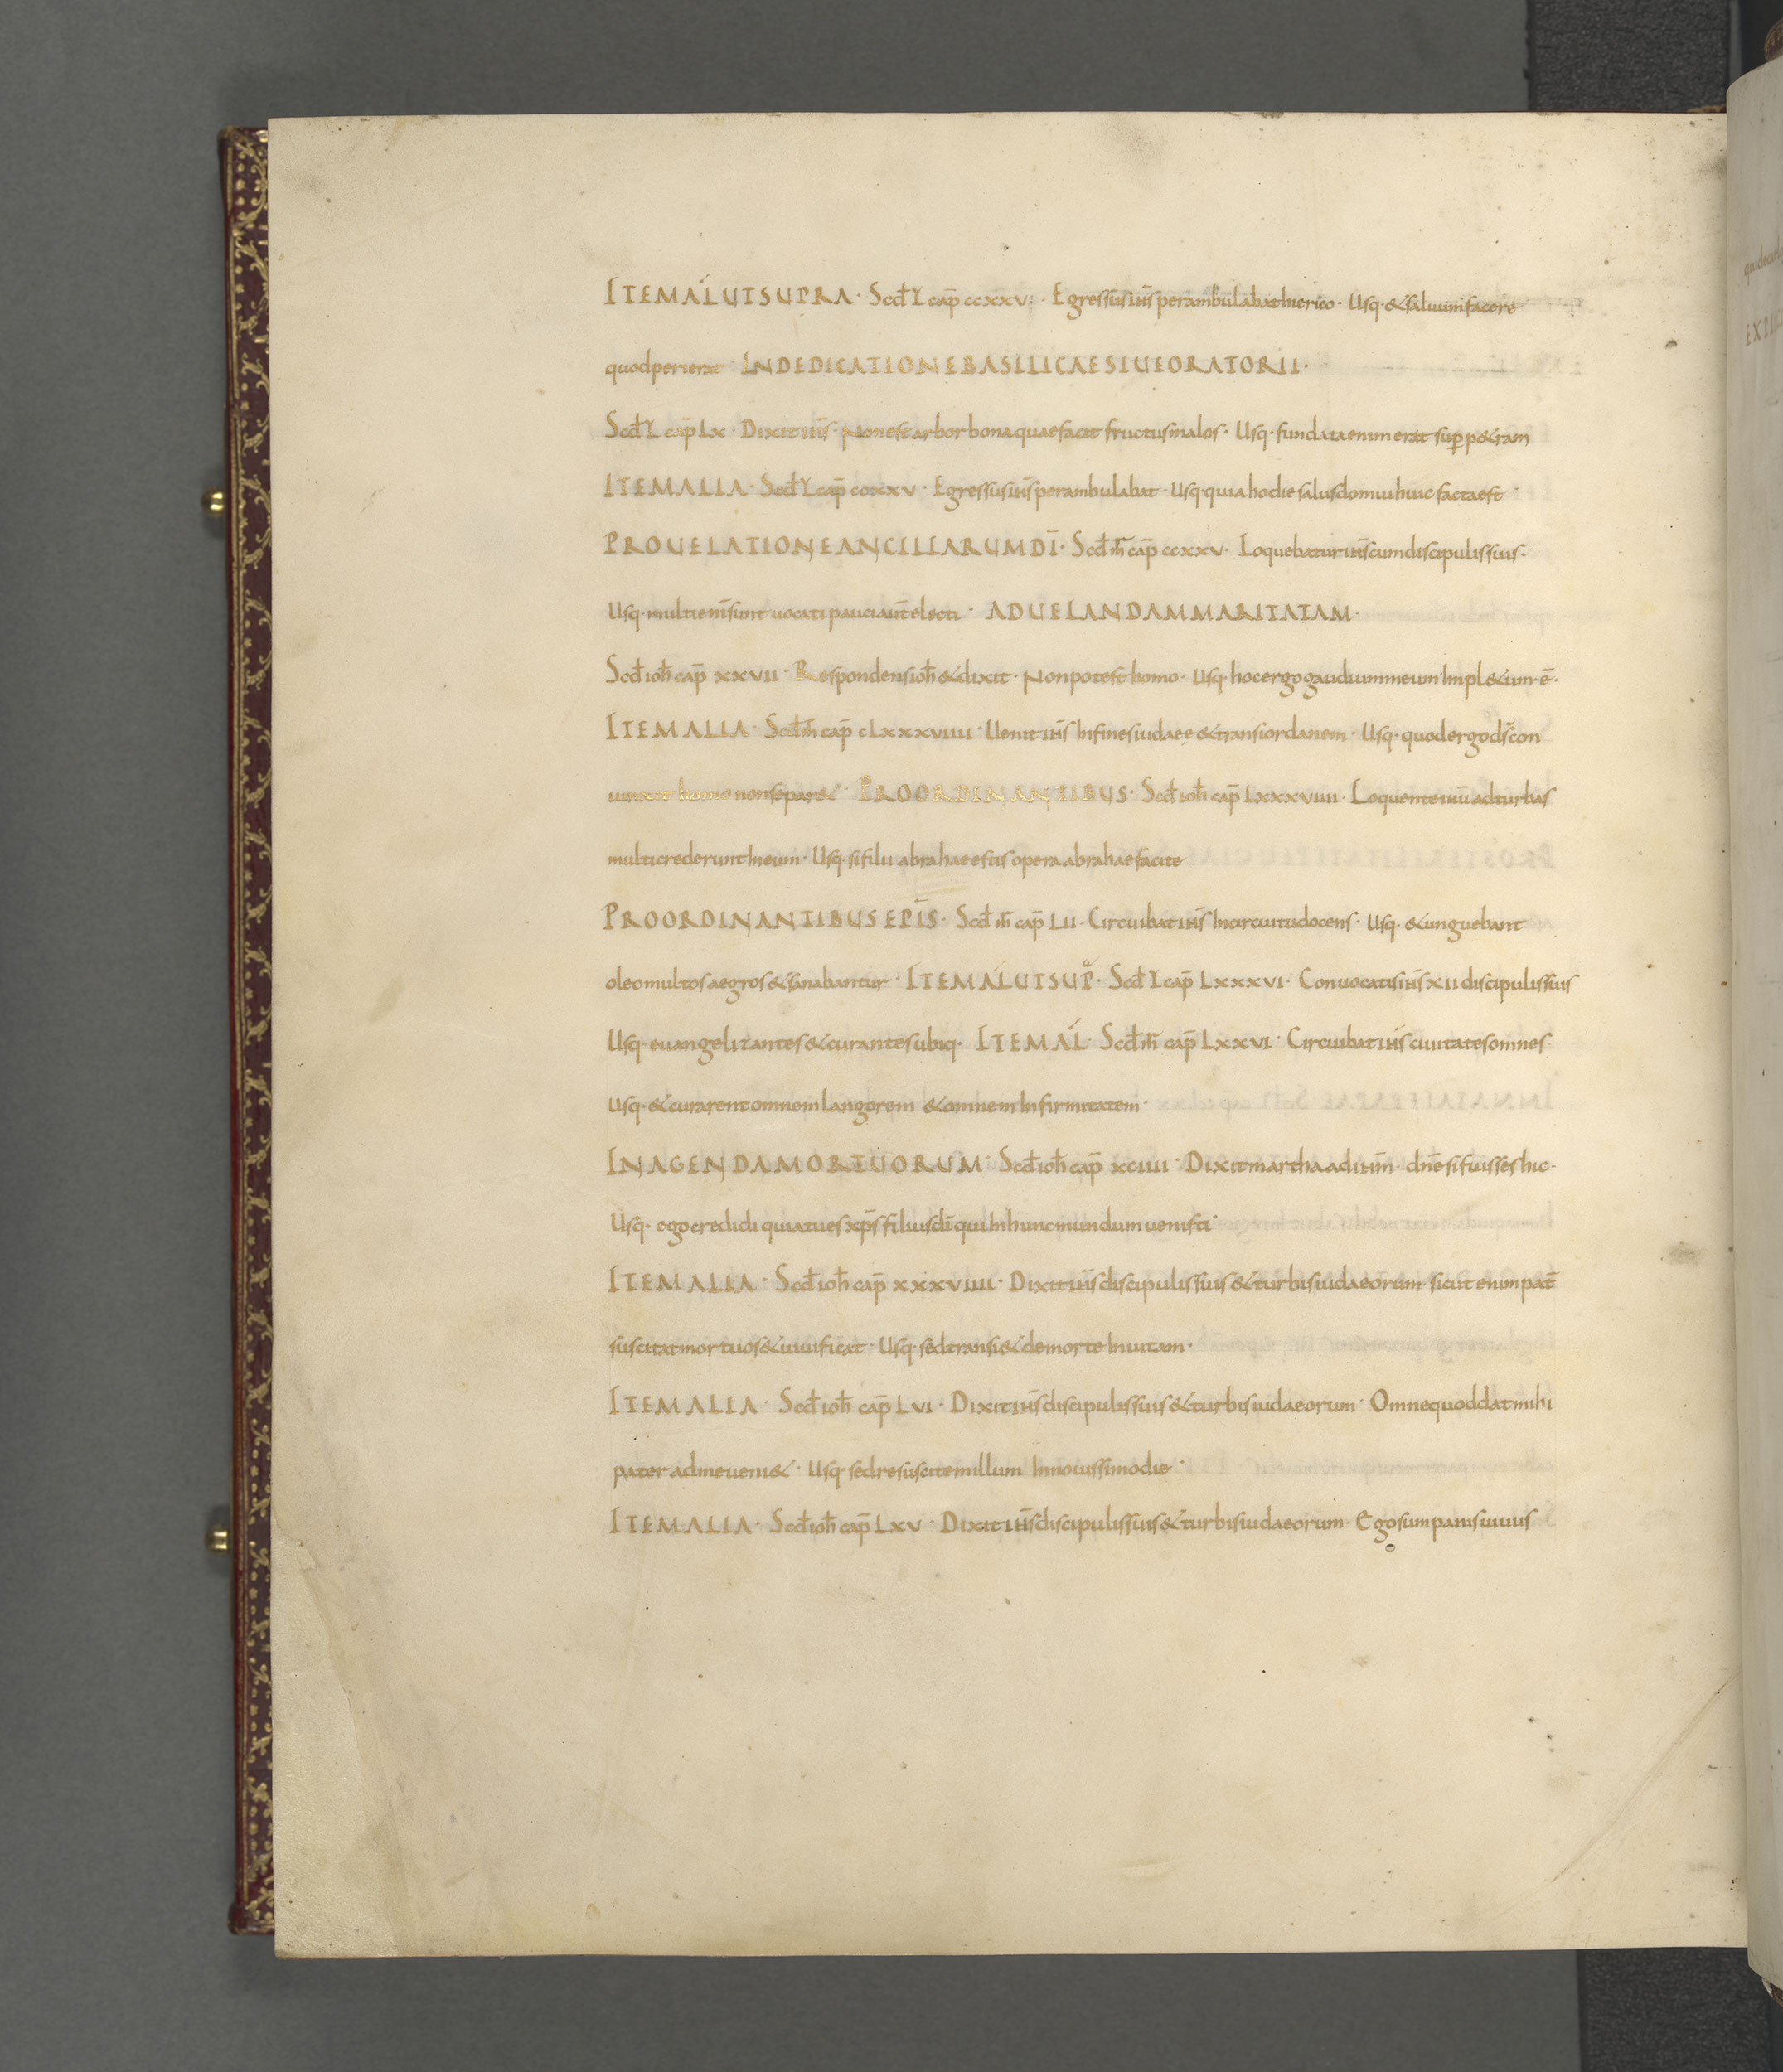 ITEM AL UT SUPRA · Scd L cap̄ ccxxv · Egressus ih̄s perambulabat hierico · Usq · & saluum facere
quod perierat · IN DEDICATIONE BASILICAE SIUE ORATORII ·
Scd L cap̄ Lx · Dixit ih̄s · Non est arbor bona quae facit fructus malos · Usq · fundata enim erat sup̄ p&ram
ITEM ALIA · Scd L cap̄ ccxxv · Egressus ih̄s perambulabat · Usq · quia hodie salus domui huic facta est ·
PRO UELATIONE ANCILLARUM DI̅ · Scd m̄ cap̄ ccxxv · Loquebatur ih̄s cum discipulis suis ·
Usq · multi eni̅ sunt uocati pauci aut̄ electi · AD UELANDAM MARITATAM ·
Scd ioh̄ cap̄ xxvii · Respondens ioh̄ & dixit · Non potest homo · Usq · hoc ergo gaudium meum Impl&um · ē ·
ITEM ALIA · Scd m̄ cap̄ cLxxxviiii · Uenit ih̄s In fines iudaeę & trans iordanem · Usq · quod ergo ds̄ con
iunxit homo non separ& · PRO ORDINANTIBUS · Scd ioh̄ cap̄ Lxxxviiii · Loquente ihū ad turbas
multi crederunt In eum · Usq · si filii abrahae estis opera abrahae facite
PRO ORDINANTIBUS EPI̅S · Scd m̄ cap̄ Lii · Circuibat ih̄s In circuitu docens · Usq · & unguebant
oleo multos aegros & sanabantur · ITEM AL UT SUP̄ · Scd L cap̄ Lxxxvi · Conuocatis ih̄s xii discipulis suis
Usq · euangelizantes & curantes ubiq · ITEM AL · Scd m̄ cap̄ Lxxvi · Circuibat ih̄s ciuitates omnes
Usq · & curarent omnem langorem & omnem Infirmitatem ·
IN AGENDA MORTUORUM · Scd ioh̄ cap̄ xciiii · Dixit martha ad ih̄m · dn̄e si fuisses hic ·
Usq · ego credidi quia tu es xp̄s filius di̅ qui In hunc mundum uenisti ·
ITEM ALIA · Scd ioh̄ cap̄ xxxviiii · Dixit ih̄s discipulis suis & turbis iudaeorum · sicut enim pat̄
suscitat mortuos & uiuificat · Usq · sed transi& de morte In uitam ·
ITEM ALIA · Scd ioh̄ cap̄ Lvi · Dixit ih̄s discipulis suis & turbis iudaeorum · Omne quod dat mihi
pater ad me ueni& · Usq · sed resuscitem illum In nouissimo die ·
ITEM ALIA · Scd ioh̄ cap̄ Lxv · Dixit ih̄s discipulis suis & turbis iudaeorum · Ego sum panis uiuus